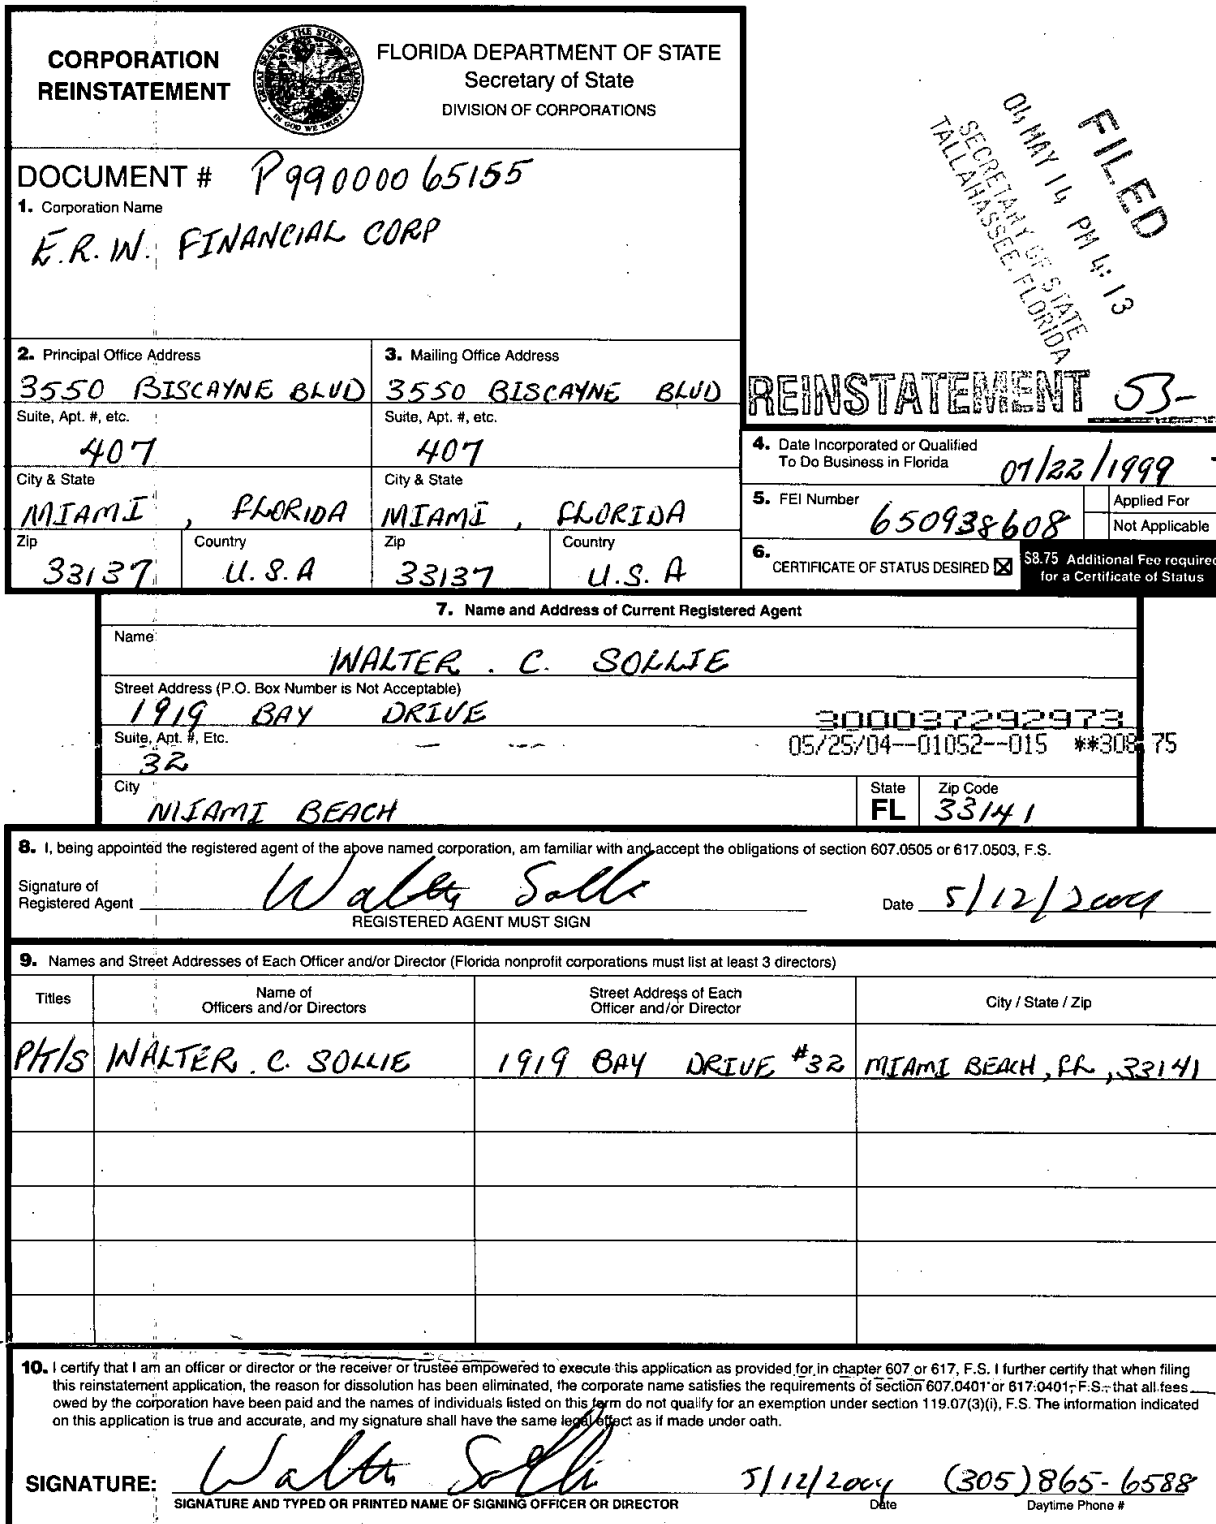 CORPORATION
REINSTATEMENT
GREAT SEAL OF THE STATE OF FLORIDA
IN GOD WE TRUST
FLORIDA DEPARTMENT OF STATE
Secretary of State
DIVISION OF CORPORATIONS
FILED
04 MAY 14 PM 4:13
SECRETARY OF STATE
TALLAHASSEE, FLORIDA
DOCUMENT # P99000065155
1. Corporation Name
E.R.W. FINANCIAL CORP
2. Principal Office Address
3550 BISCAYNE BLVD
Suite, Apt. #, etc.
407
City & State
MIAMI, FLORIDA
Zip Country
33137 U.S.A
3. Mailing Office Address
3550 BISCAYNE BLVD
Suite, Apt. #, etc.
407
City & State
MIAMI, FLORIDA
Zip Country
33137 U.S.A
REINSTATEMENT 53-
4. Date Incorporated or Qualified
To Do Business in Florida 07/22/1999
5. FEI Number 650938608
Applied For
Not Applicable
6. CERTIFICATE OF STATUS DESIRED ☒
$8.75 Additional Fee required
for a Certificate of Status
7. Name and Address of Current Registered Agent
Name
WALTER . C. SOLLIE
Street Address (P.O. Box Number is Not Acceptable)
1919 BAY DRIVE
300037292973
Suite, Apt. #, Etc.
32
05/25/04--01052--015 **308.75
City State Zip Code
MIAMI BEACH FL 33141
8. I, being appointed the registered agent of the above named corporation, am familiar with and accept the obligations of section 607.0505 or 617.0503, F.S.
Signature of
Registered Agent Walter Sollie Date 5/12/2004
REGISTERED AGENT MUST SIGN
9. Names and Street Addresses of Each Officer and/or Director (Florida nonprofit corporations must list at least 3 directors)
Titles Name of Officers and/or Directors Street Address of Each Officer and/or Director City / State / Zip
P/T/S WALTER . C. SOLLIE 1919 BAY DRIVE #32 MIAMI BEACH, FL, 33141
10. I certify that I am an officer or director or the receiver or trustee empowered to execute this application as provided for in chapter 607 or 617, F.S. I further certify that when filing
this reinstatement application, the reason for dissolution has been eliminated, the corporate name satisfies the requirements of section 607.0401 or 617.0401, F.S., that all fees
owed by the corporation have been paid and the names of individuals listed on this form do not qualify for an exemption under section 119.07(3)(i), F.S. The information indicated
on this application is true and accurate, and my signature shall have the same legal effect as if made under oath.
SIGNATURE: Walter Sollie 5/12/2004 (305)865-6588
SIGNATURE AND TYPED OR PRINTED NAME OF SIGNING OFFICER OR DIRECTOR Date Daytime Phone #